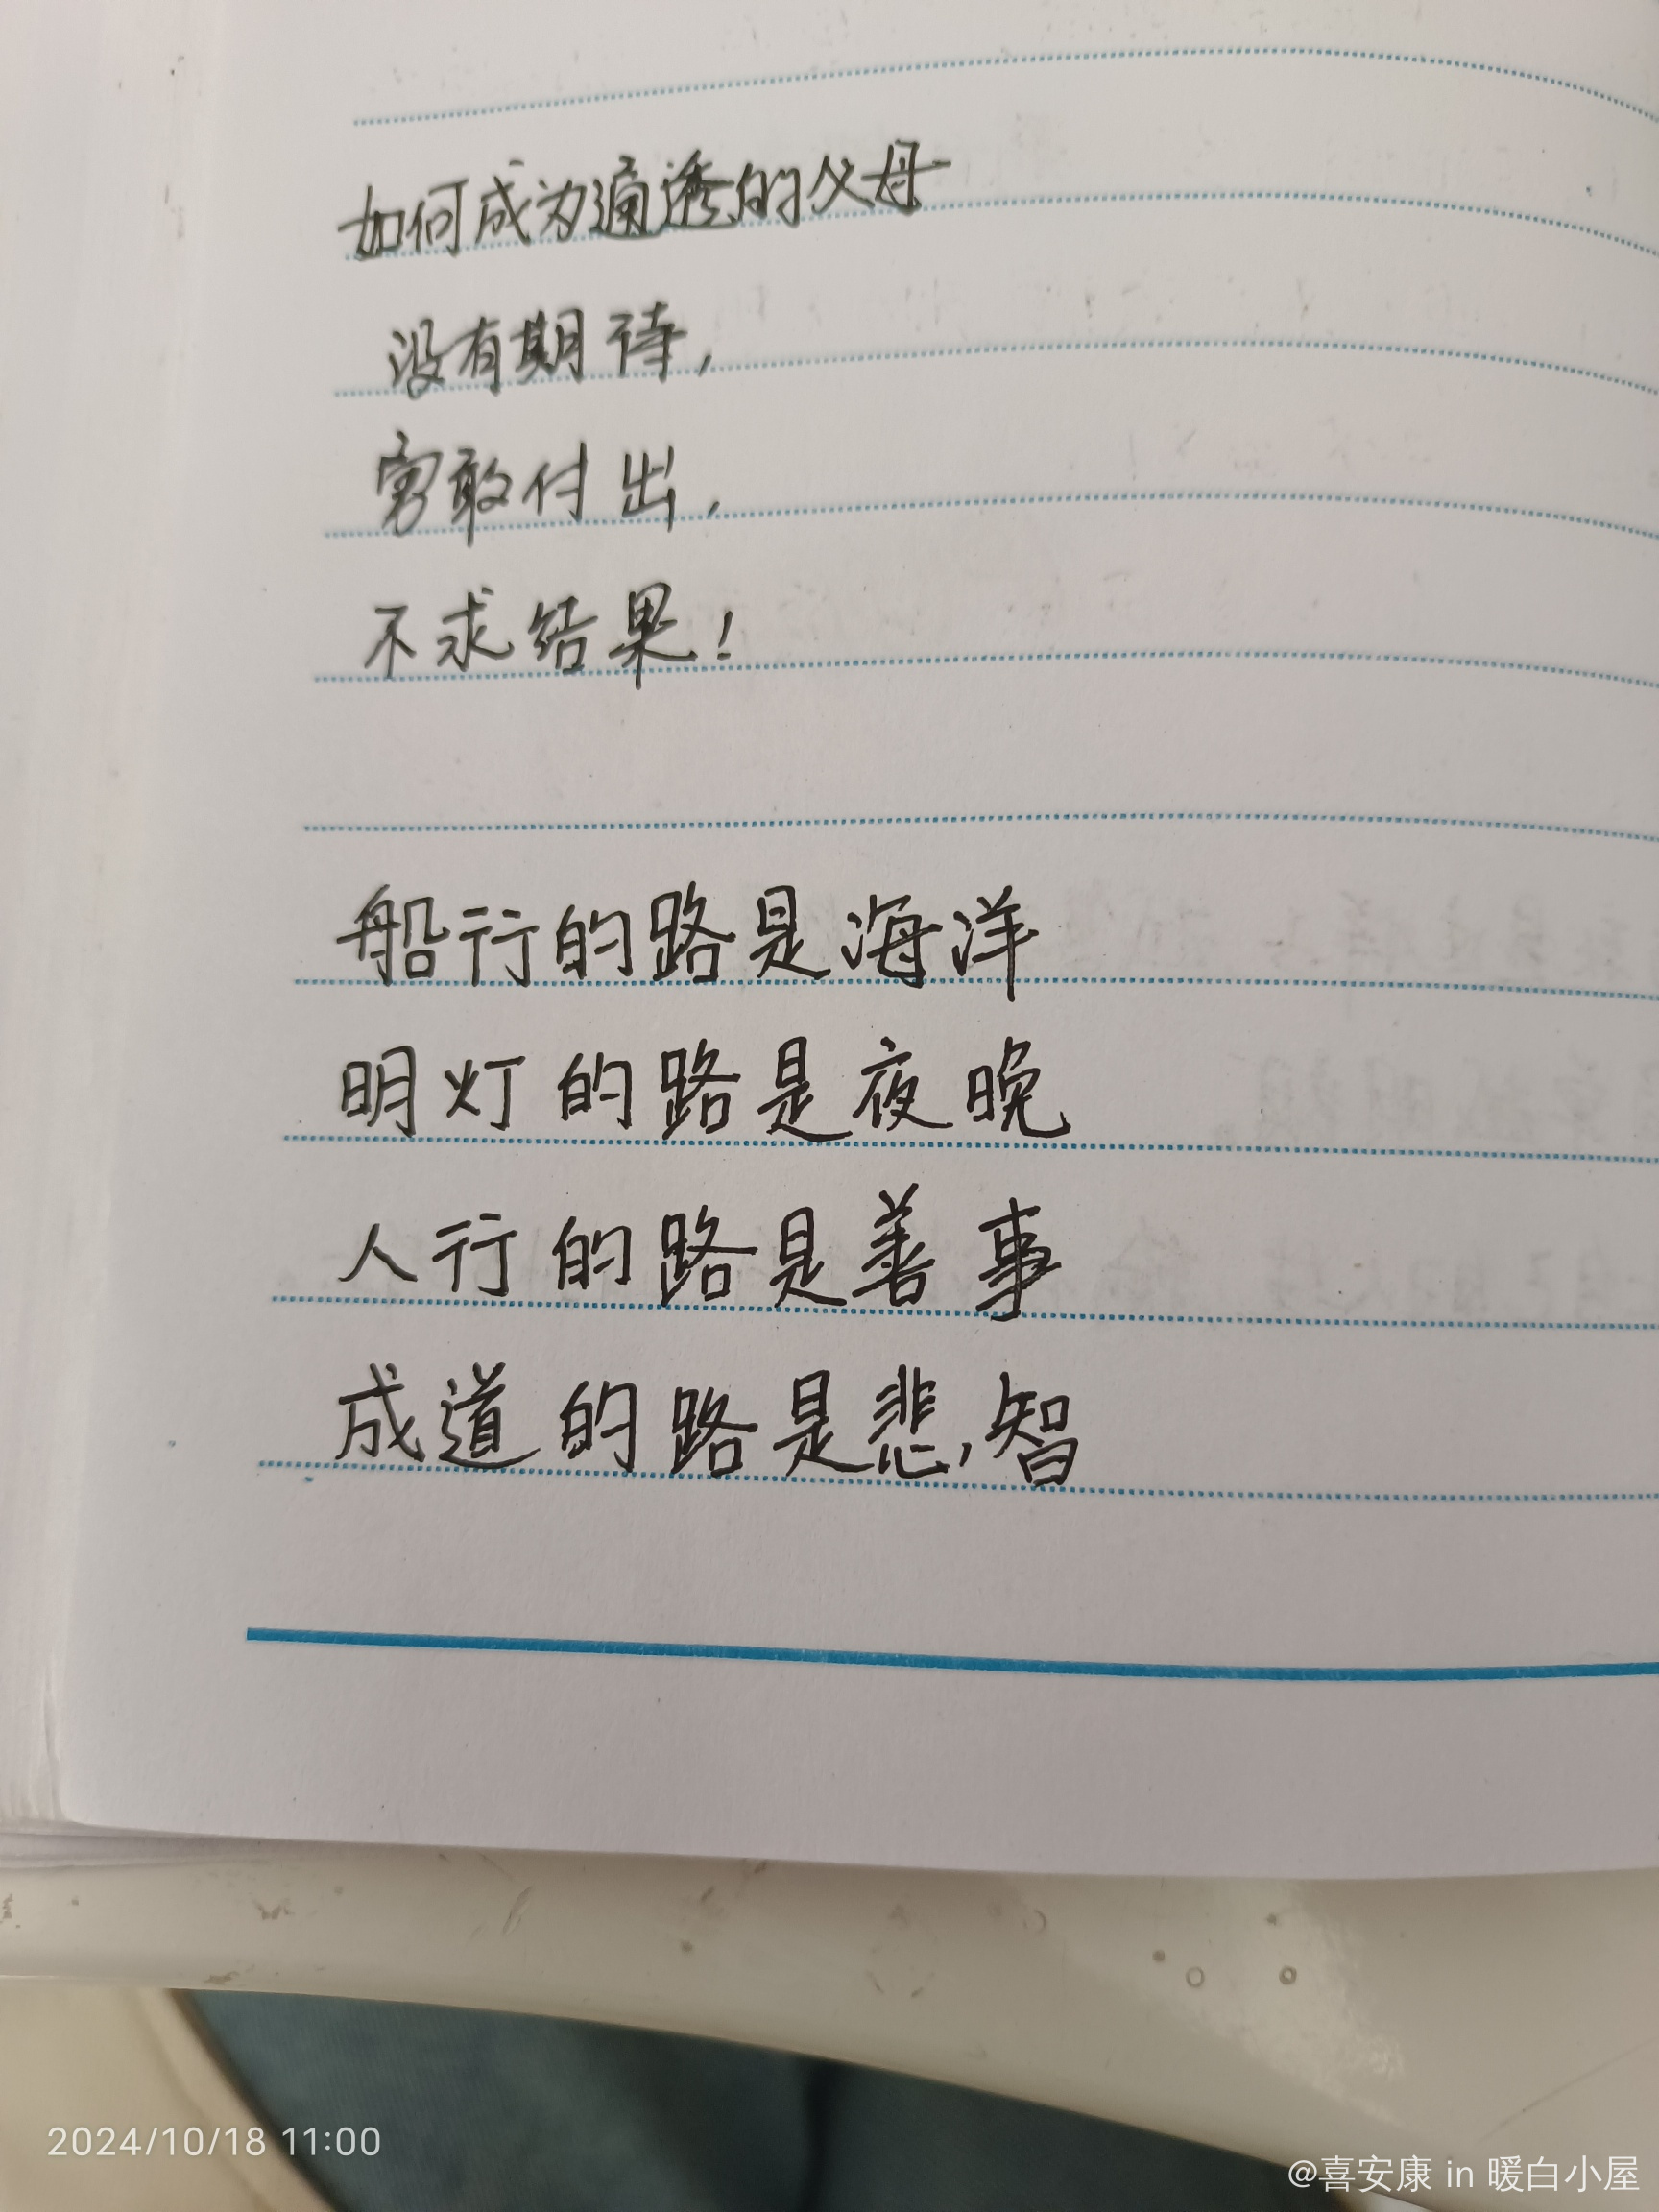 如何成为通透的父母
没有期待,
勇敢付出,
不求结果!
船行的路是海洋
明灯的路是夜晚
人行的路是善事
成道的路是悲,智
2024/10/18 11:00
@喜安康 in 暖白小屋